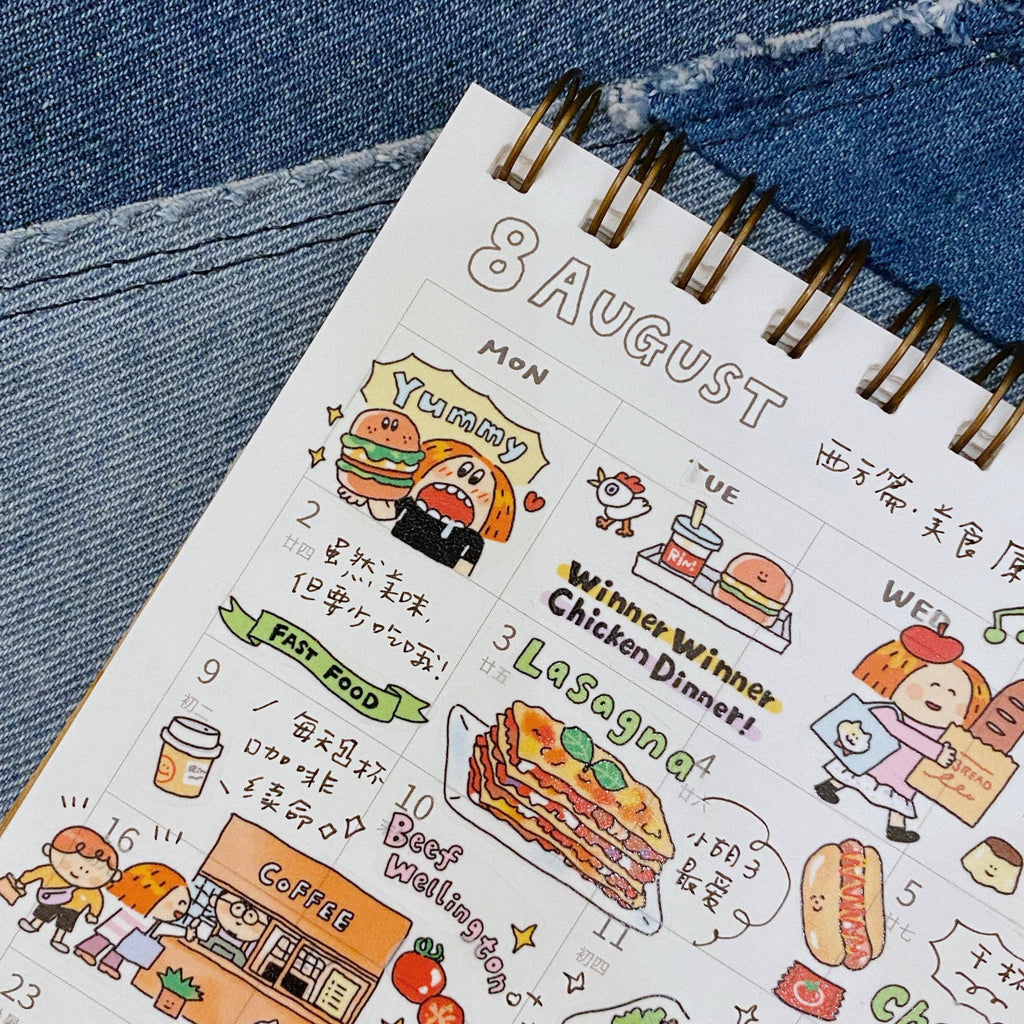 8 AUGUST
MON
TUE
WED
西方篇·美食
Yummy
2
廿四
虽然美味,
但要少吃哦!
FAST FOOD
RIN!
Winner Winner
Chicken Dinner!
3
廿五
Lasagna
4
廿六
小胡子
最爱
BREAD
5
廿七
干杯
9
初二
每天一杯
咖啡
续命
10
Beef
Wellington
11
初四
16
COFFEE
23